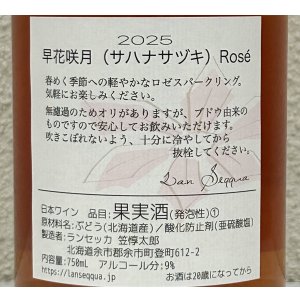 2025
早花咲月（サハナサヅキ）Rosé
春めく季節への軽やかなロゼスパークリング。
気軽にお楽しみください。
無濾過のためオリがありますが、ブドウ由来の
ものですので安心してお飲みいただけます。
吹きこぼれないよう、十分に冷やしてから
抜栓してください。
Lan Seqqua
日本ワイン　品目：果実酒（発泡性）①
原材料名：ぶどう（北海道産）/酸化防止剤（亜硫酸塩）
製造者：ランセッカ 笠惇太郎
北海道余市郡余市町登町612-2
内容量：750ml　アルコール分：9%
https://lanseqqua.jp/
お酒は20歳になってから